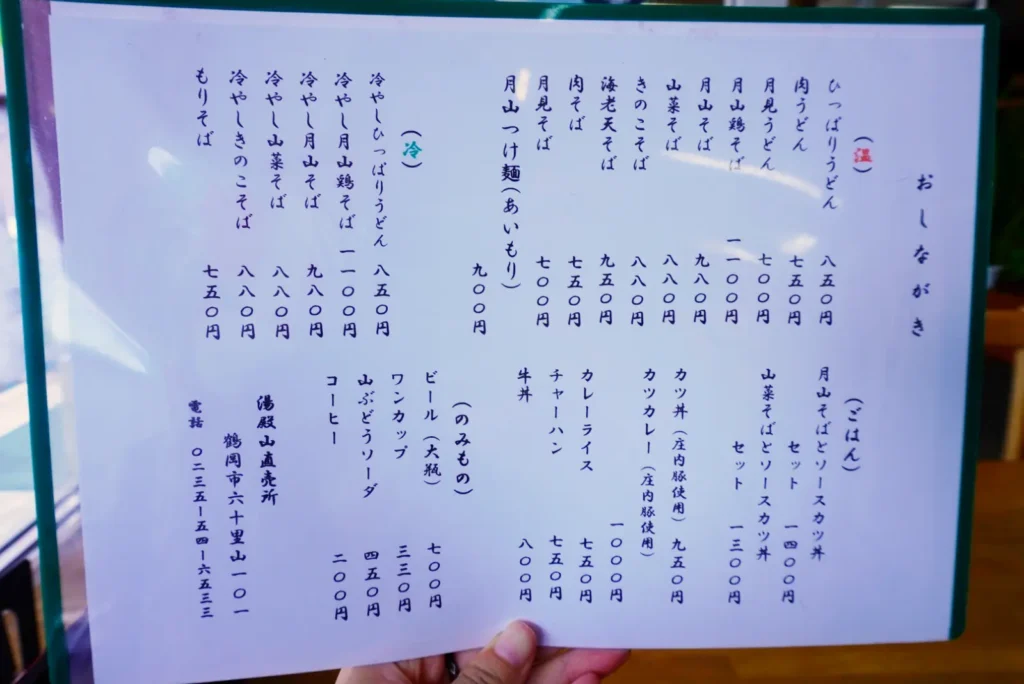 おしながき
(温)
ひっぱりうどん 八五〇円
肉うどん 七五〇円
月見うどん 七〇〇円
月山鶏そば 一一〇〇円
月山そば 九八〇円
山菜そば 八八〇円
きのこそば 八八〇円
海老天そば 九五〇円
肉そば 七五〇円
月見そば 七〇〇円
月山つけ麺(あいもり)
九〇〇円
(冷)
冷やしひっぱりうどん 八五〇円
冷やし月山鶏そば 一一〇〇円
冷やし月山そば 九八〇円
冷やし山菜そば 八八〇円
冷やしきのこそば 八八〇円
もりそば 七五〇円
(ごはん)
月山そばとソースカツ丼
セット 一四〇〇円
山菜そばとソースカツ丼
セット 一三〇〇円
カツ丼(庄内豚使用) 九五〇円
カツカレー(庄内豚使用)
一〇〇〇円
カレーライス 七五〇円
チャーハン 七五〇円
牛丼 八〇〇円
(のみもの)
ビール(大瓶) 七〇〇円
ワンカップ 三三〇円
山ぶどうソーダ 四五〇円
コーヒー 二〇〇円
湯殿山直売所
鶴岡市六十里山一〇一
電話 〇二三五－五四－六五三三